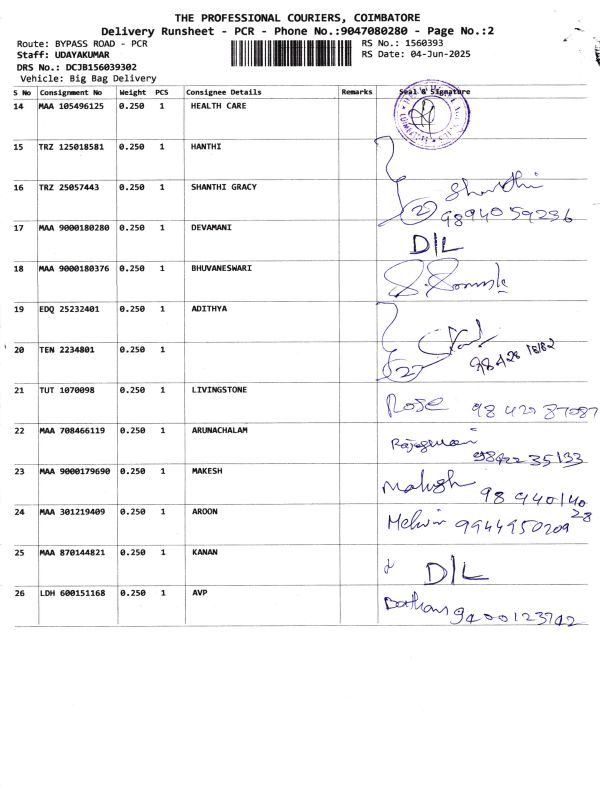 THE PROFESSIONAL COURIERS, COIMBATORE
Delivery Runsheet - PCR - Phone No.:9047080280 - Page No.:2
Route: BYPASS ROAD - PCR
RS No.: 1560393
Staff: UDAYAKUMAR
RS Date: 04-Jun-2025
DRS No.: DCJB156039302
Vehicle: Big Bag Delivery
S No Consignment No Weight PCS Consignee Details Remarks Seal & Signature
14 MAA 105496125 0.250 1 HEALTH CARE
15 TRZ 125018581 0.250 1 HANTHI
16 TRZ 25057443 0.250 1 SHANTHI GRACY Shanthi
2 9894059236
17 MAA 9000180280 0.250 1 DEVAMANI D/L
18 MAA 9000180376 0.250 1 BHUVANESWARI
19 EDQ 25232401 0.250 1 ADITHYA
20 TEN 2234801 0.250 1 2
21 TUT 1070098 0.250 1 LIVINGSTONE Rose 98 42087087
22 MAA 708466119 0.250 1 ARUNACHALAM
9842235133
23 MAA 9000179690 0.250 1 MAKESH Mahesh 98 940140
28
24 MAA 301219409 0.250 1 AROON Melwin 9944950209
25 MAA 870144821 0.250 1 KANAN D/L
26 LDH 600151168 0.250 1 AVP 9400123742